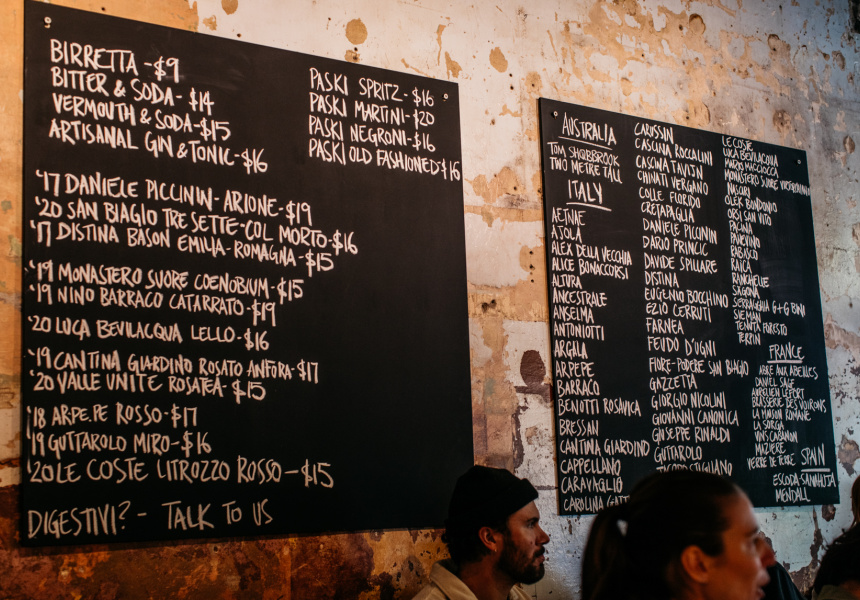 BIRRETTA - $9
BITTER & SODA - $14
VERMOUTH & SODA - $15
ARTISANAL GIN & TONIC - $16
PASKI SPRITZ - $16
PASKI MARTINI - $20
PASKI NEGRONI - $16
PASKI OLD FASHIONED $16
'17 DANIELE PICCININ - ARIONE - $19
'20 SAN BIAGIO TRE SETTE - COL MORTO - $16
'17 DISTINA BASON EMILIA - ROMAGNA - $15
'19 MONASTERO SUORE COENOBIUM - $15
'19 NINO BARRACO CATARRATO - $19
'20 LUCA BEVILACQUA LELLO - $16
'19 CANTINA GIARDINO ROSATO ANFORA - $17
'20 VALLE UNITE ROSATEA - $15
'18 AR.PE.PE ROSSO - $17
'19 GUTTAROLO MIRO - $16
'20 LE COSTE LITROZZO ROSSO - $15
DIGESTIVI? - TALK TO US
AUSTRALIA
TOM SHOBBROOK
TWO METRE TALL
ITALY
AETNAE
AJOLA
ALEX DELLA VECCHIA
ALICE BONACCORSI
ALTURA
ANCESTRALE
ANSELMA
ANTONIOTTI
ARGALA
ARPEPE
BARRACO
BENOTTI ROSAVICA
BRESSAN
CANTINA GIARDINO
CAPPELLANO
CARAVAGLIO
CAROLINA
CARUSSIN
CASCINA ROCCALINI
CASCINA TAVIJN
CHINATI VERGANO
COLLE FLORIDO
CRETAPAGLIA
DANIELE PICCININ
DARIO PRINCIC
DAVIDE SPILLARE
DISTINA
EUGENIO BOCCHINO
EZIO CERRUTI
FARNEA
FEUDO D'UGNI
FIORE-PODERE SAN BIAGIO
GAZZETTA
GIORGIO NICOLINI
GIOVANNI CANONICA
GIUSEPPE RINALDI
GUTTAROLO
LE COSTE
LUCA BEVILACQUA
MARCO MACCIOCCA
MONASTERO SUORE
NASCIRI
OLEK BONDONIO
ORSI SAN VITO
PACINA
PANEVINO
RABASCO
RAICA
RANCHELLE
SAGONA
SERRAGGHIA G+G BINI
SIEMAN
TENUTA FORESTO
TERPIN
FRANCE
ABRE AUX ABEILLES
DANIEL SAGE
AURELIEN LEFORT
BRASSERIE DES VOIRONS
LA MAISON ROMANE
LA SORGA
VINS CABANON
MAZIERE
VERRE DE TERRE
SPAIN
ESCODA-SANAHUJA
MENDALL